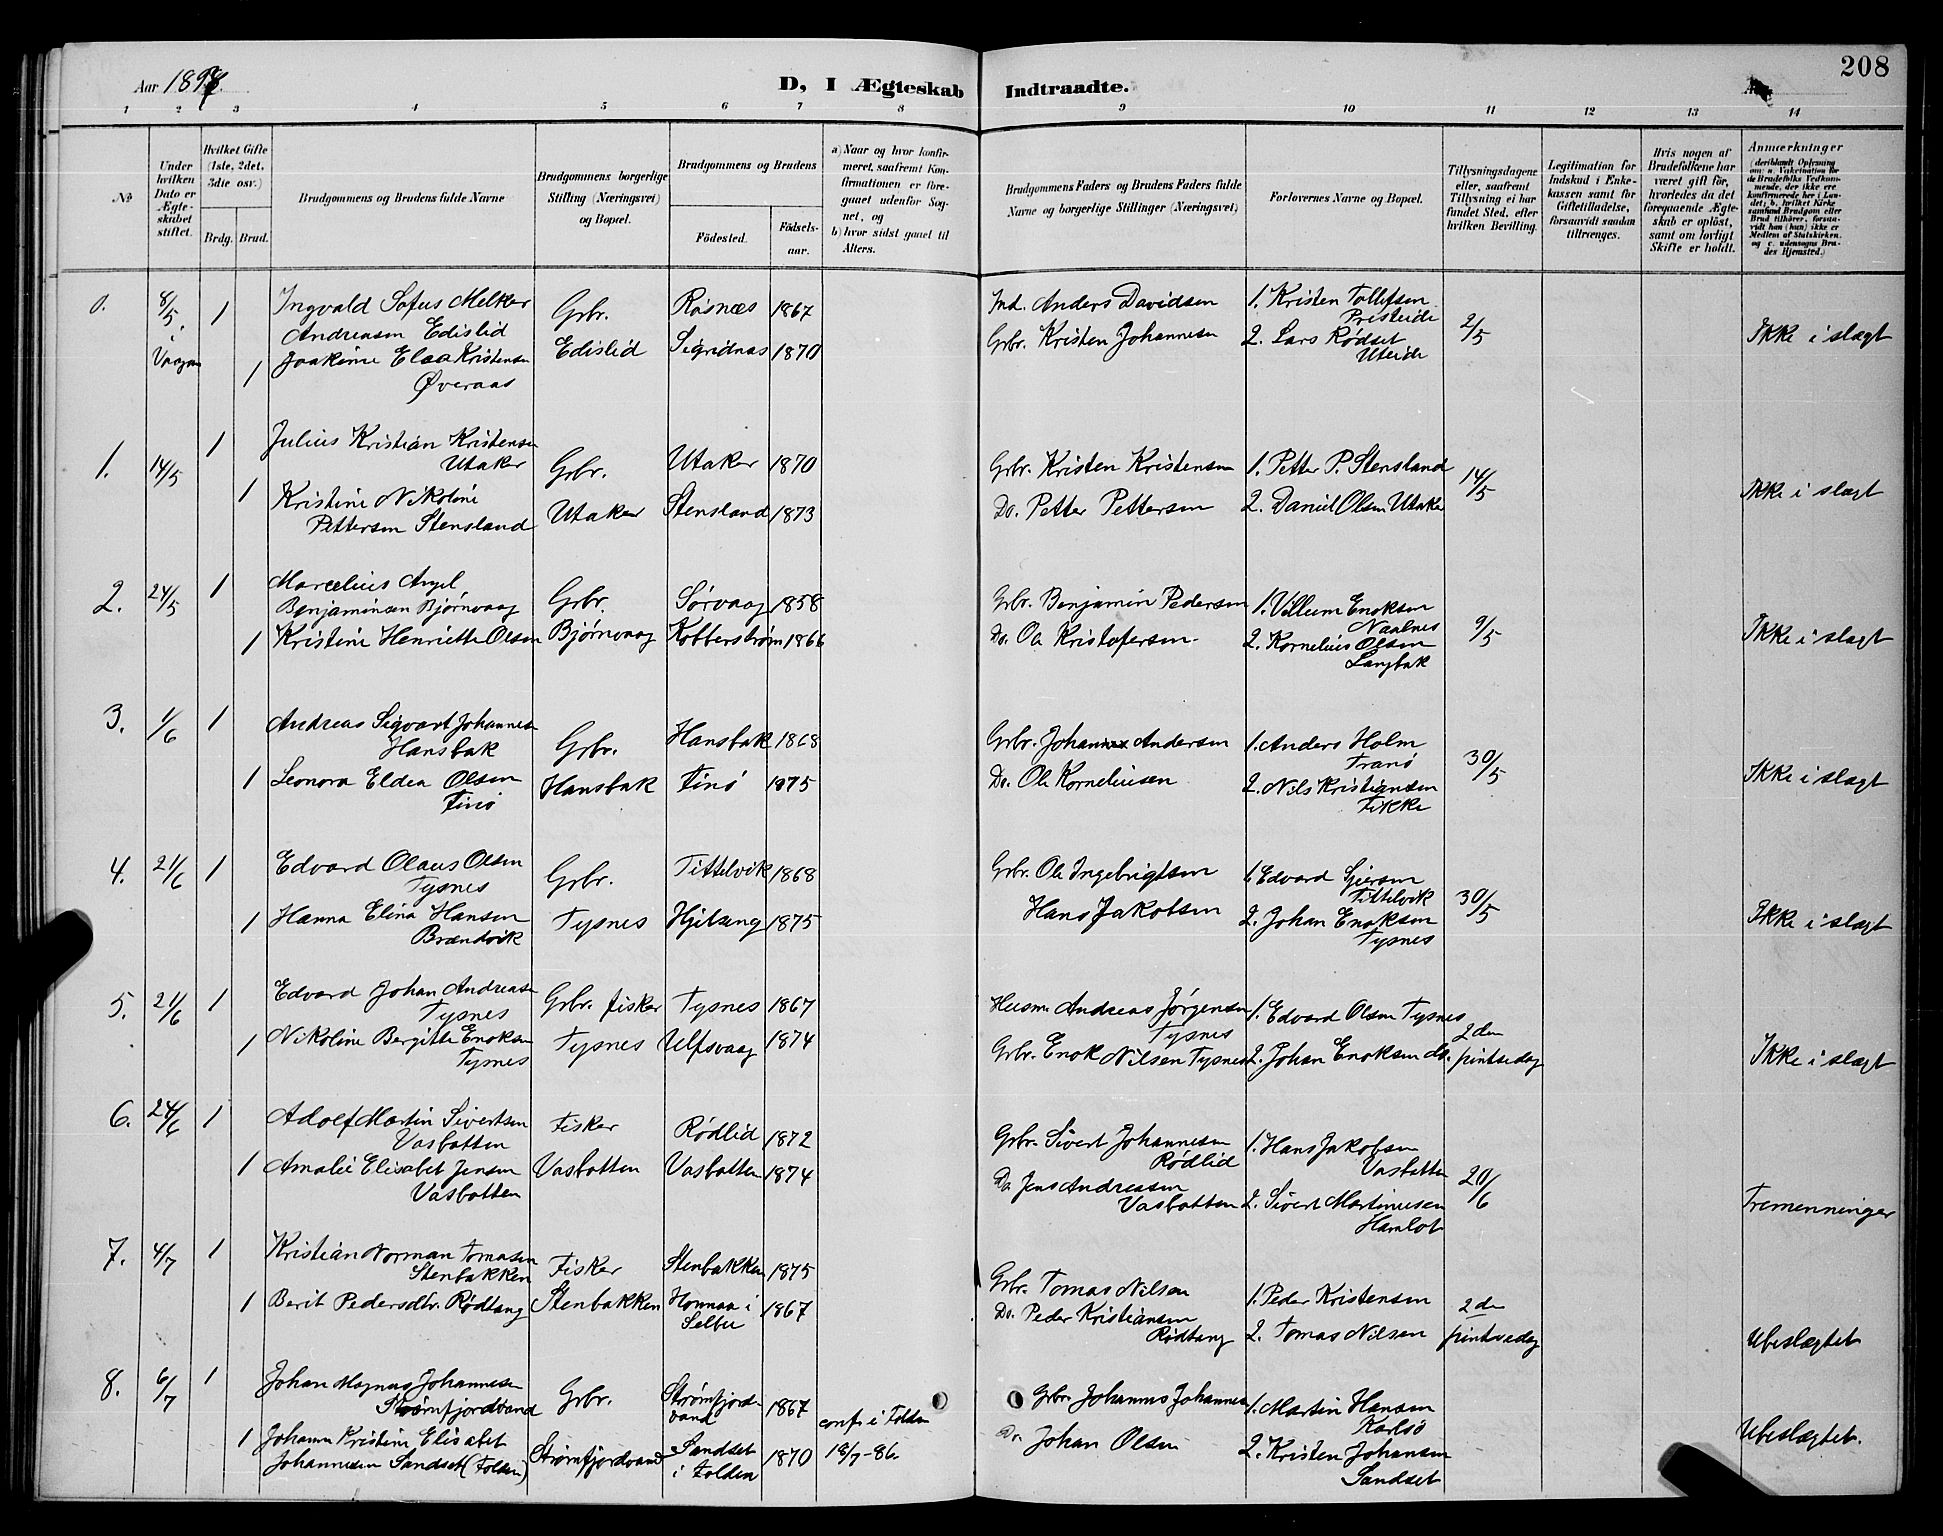 208
Aar 1897.
D, I Ægteskab Indtraadte.
1 2 3 4 5 6 7 8 9 10 11 12 13 14
No
Under hvilken Dato er Ægteskabet stiftet.
Hvilket Gifte (1ste, 2det, 3die osv.)
Brdg. Brud.
Brudgommens og Brudens fulde Navne
Brudgommens borgerlige Stilling (Næringsvei) og Bopæl.
Brudgommens og Brudens
Fødested.
Fødselsaar.
a) Naar og hvor konfirmeret, saafremt Konfirmationen er foregaaet udenfor Sognet, og
b) hvor sidst gaaet til Alters.
Brudgommens Faders og Brudens Faders fulde Navne og borgerlige Stillinger (Næringsvei)
Forlovernes Navne og Bopæl.
Tillysningsdagene eller, saafremt Tillysning ei har fundet Sted, efter hvilken Bevilling.
Legitimation for Indskud i Enkekassen samt for Giftetilladelse, forsaavidt saadan tiltrænges.
Hvis nogen af Brudefolkene har været gift før, hvorledes da det foregaaende Ægteskab er opløst, samt om lovligt Skifte er holdt.
Anmærkninger
(deriblandt Oplysning om: a. Vakcination for de Brudefolks Vedkommende, der ikke ere konfirmerede her i Landet; b. hvilket Kirkesamfund Brudgom eller Brud tilhører, forsaavidt han (hun) ikke er Medlem af Statskirken, og c. udensogns Brudes Hjemsted.)
0. 8/5 1 Ingvald Sofus Melker Grbr. Røsnæs 1867 Ind. Anders Davidsen 1. Kristen Tollefsen
Andreasen Edislid Pristeide 2/5 Ikke i slægt
i Vaagan 1 Joakime Elea Kristensen Edislid Sigridnas 1870 Grbr. Kristen Johannesen 2. Lars Rødset
Øveraas Uteide
1. 14/5 1 Julius Kristian Kristensen
Utaker Grbr. Utaker 1870 Grbr. Kristen Kristensen 1. Petter P. Stensland 14/5
1 Kristine Nikoline Ikke i slægt
Pettersen Stensland Utaker Stensland 1873 Do. Petter Pettersen 2. Daniel Olsen Utaker
2. 24/5 1 Marcelius Angel
Benjaminsen Bjørnvaag Grbr. Sørvaag 1858 Grbr. Benjamin Pedersen 1. Villum Enoksen
Naalnes 9/5
1 Kristine Henriette Olsen Bjørnvaag Kobberstrøm 1866 Do. Ole Kristofersen 2. Kornelius Olsen Ikke i slægt
Langbak
3. 1/6 1 Andreas Sigvart Johannesen
Hansbak Grbr. Hansbak 1868 Grbr. Johan Andersen 1. Anders Holm
Tranø 30/5
1 Leonora Eldea Olsen Hansbak Finø 1875 Do. Ole Korneliussen 2. Nils Kristiansen Ikke i slægt
Finø Fikke
4. 21/6 1 Edvard Olaus Olsen Grbr. Tittelvik 1868 Grbr. Ole Ingebrigtsen 1. Edvard
Tysnes Tittelvik 30/5
1 Hanna Elina Hansen Tysnes Hjelseng 1875 Hans Jakobsen 2. Johan Enoksen Ikke i slægt
Brændvik Tysnes
5. 21/6 1 Edvard Johan Andreasen Grbr. fisker Tysnes 1867 Husm. Andreas Jørgensen 1. Edvard Olsen Tysnes
Tysnes Tysnes 2den
1 Nikoline Bergitte Enoksen Tysnes Ulfsvaag 1874 Grbr. Enok Nilsen Tysnes 2. Johan Enoksen do. pintsedag Ikke i slægt
Tysnes
6. 24/6 1 Adolf Martin Sivertsen Fisker Rødlid 1872 Grbr. Sivert Johannesen 1. Hans Jakobsen
Vasbotten Rødlid Vasbotten
1 Amalie Elisabet Jensen Vasbotten Vasbotten 1874 Do. Jens Andreasen 20/6
Vasbotten Vasbotten 2. Sivert Martinusen Tremenninger
Hamlot
7. 4/7 1 Kristian Norman Tomasen Fisker Stenbakken 1875 Grbr. Tomas Nilsen
Stenbakken 1. Peder Kristensen 2den
1 Berit Pedersdtr. Rødtang Stenbakken Hommaa i 1867 Do. Peder Kristiansen
Selbu Rødtang 2. Tomas Nilsen pintsedag Ubeslægtet
8. 6/7 1 Johan Magnus Johannesen Grbr. Strømfjord- 1867 Grbr. Johannes Johannesen 1. Martin Hansen
Strømfjordvand vand conf. i Folden Karlsø
1 Johanna Kristine Elisabet Strømfjordvand Sandset 1870 18/7-86. Do. Johan Olsen 2. Kristen Johansen Ubeslægtet.
Johannesen Sandset (Folden) i Folden Sandset